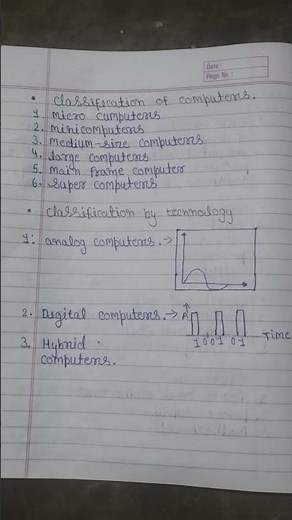 Date :
Page No. :
• Classification of computers.
1. Micro computers
2. minicomputers
3. medium-size computers
4. large computers
5. Main frame computer
6. super computers
• Classification by technology
1: analog computers.→
2. Digital computers.→ A
1 0 0 1 0 1 Time
3. Hybrid
computers.